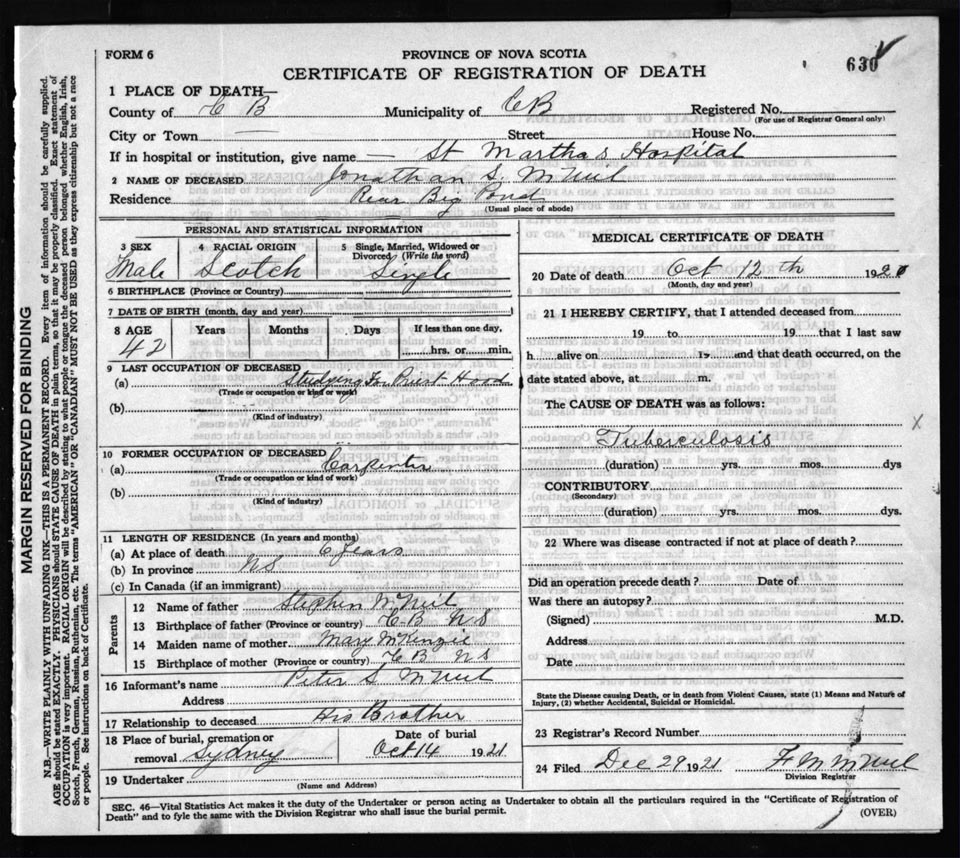 FORM 6
PROVINCE OF NOVA SCOTIA
CERTIFICATE OF REGISTRATION OF DEATH
630
1 PLACE OF DEATH—
County of C B Municipality of CB Registered No.
(For use of Registrar General only)
City or Town — Street House No.
If in hospital or institution, give name — St Martha's Hospital
2 NAME OF DECEASED Jonathan S. McNeil
Residence Rear Big Pond
(Usual place of abode)
PERSONAL AND STATISTICAL INFORMATION
3 SEX 4 RACIAL ORIGIN 5 Single, Married, Widowed or Divorced (Write the word)
Male Scotch Single
6 BIRTHPLACE (Province or Country)
7 DATE OF BIRTH (month, day and year)
8 AGE Years Months Days If less than one day,
42 hrs. or min.
9 LAST OCCUPATION OF DECEASED
(a) Studying for Priest Hood
(Trade or occupation or kind of work)
(b)
(Kind of industry)
10 FORMER OCCUPATION OF DECEASED
(a) Carpenter
(Trade or occupation or kind of work)
(b)
(Kind of industry)
11 LENGTH OF RESIDENCE (In years and months)
(a) At place of death 6 years
(b) In province NS
(c) In Canada (if an immigrant)
Parents
12 Name of father Stephen McNeil
13 Birthplace of father (Province or country) C B NS
14 Maiden name of mother Mary McKenzie
15 Birthplace of mother (Province or country) C B NS
16 Informant's name Peter S McNeil
Address
17 Relationship to deceased His Brother
18 Place of burial, cremation or removal Sydney Date of burial Oct 14 1921
19 Undertaker
(Name and Address)
MEDICAL CERTIFICATE OF DEATH
20 Date of death Oct 12 th 192
(Month, day and year)
21 I HEREBY CERTIFY, that I attended deceased from
19 to 19 that I last saw
h alive on 19 and that death occurred, on
date stated above, at m.
The CAUSE OF DEATH was as follows:
Tuberculosis
(duration) yrs. mos. dys
CONTRIBUTORY
(Secondary)
(duration) yrs. mos. dys.
22 Where was disease contracted if not at place of death?
Did an operation precede death? Date of
Was there an autopsy?
(Signed) M.D.
Address
Date
State the Disease causing Death, or in death from Violent Causes, state (1) Means and Nature of
Injury, (2) whether Accidental, Suicidal or Homicidal.
23 Registrar's Record Number
24 Filed Dec 29 1921 F M McNeil
Division Registrar
SEC. 46—Vital Statistics Act makes it the duty of the Undertaker or person acting as Undertaker to obtain all the particulars required in the "Certificate of Registration of
Death" and to fyle the same with the Division Registrar who shall issue the burial permit.
(OVER)
MARGIN RESERVED FOR BINDING
N.B.—WRITE PLAINLY WITH UNFADING INK—THIS IS A PERMANENT RECORD. Every item of information should be carefully supplied.
AGE should be stated EXACTLY. PHYSICIANS should STATE CAUSE OF DEATH in plain terms, so that it may be properly classified. Exact statement of
OCCUPATION is very important. RACIAL ORIGIN will be described by stating to what people or tongue the deceased person belonged whether English, Irish,
Scotch, French, German, Russian, Ruthenian, etc. The terms "AMERICAN" OR "CANADIAN" MUST NOT BE USED as they express citizenship but not a race
or people. See instructions on back of Certificate.